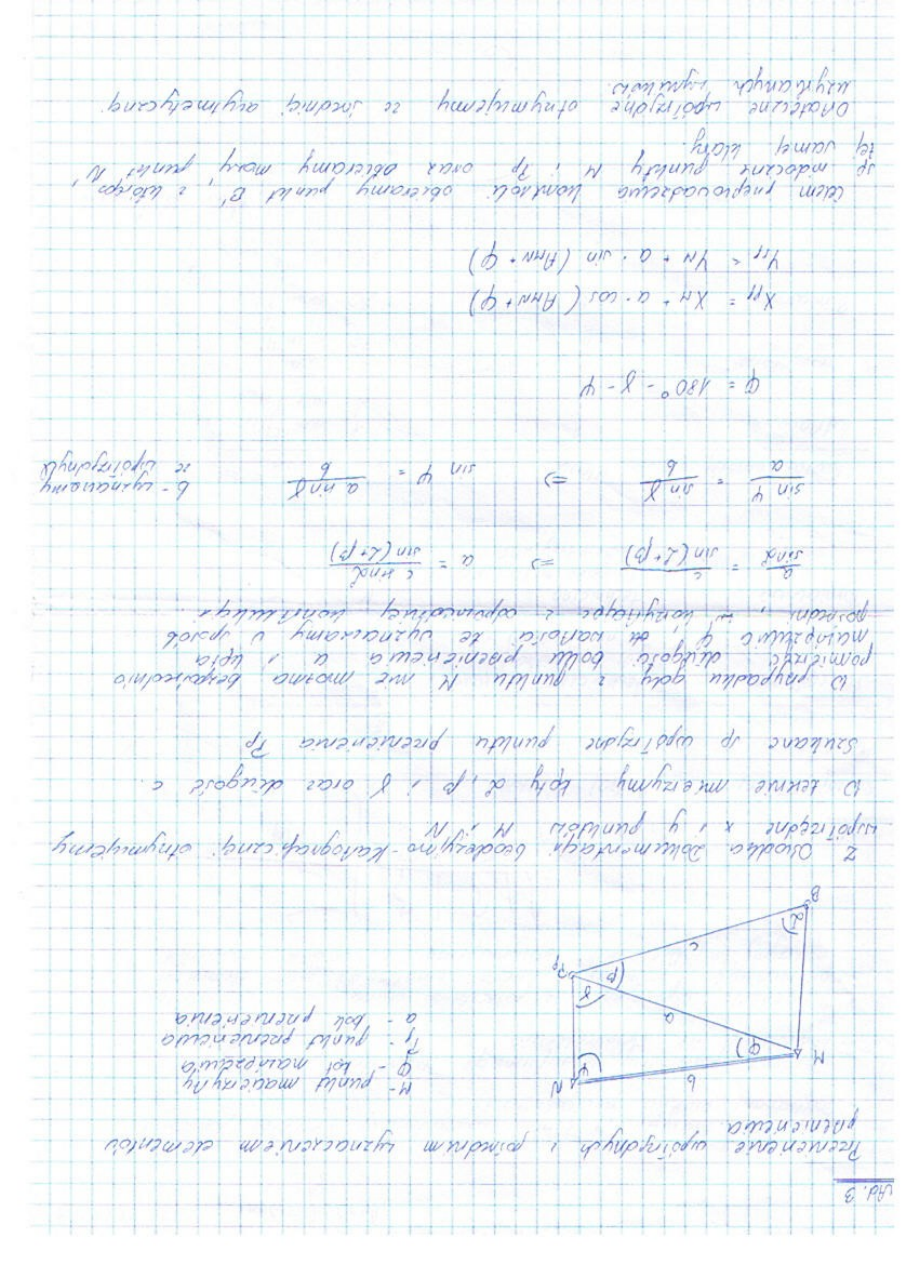 Ad. 3
Przeniesienie współrzędnych z pośrednim wyznaczeniem elementów
przeniesienia
M - punkt macierzysty
φ - kąt nawiązania
Pp - punkt przeniesienia
a - bok przeniesienia
N
b
M
φ
ψ
a
γ
β
Pp
c
α
B
Z Ośrodka Dokumentacji Geodezyjno-Kartograficznej otrzymujemy
współrzędne x i y punktów M i N
W terenie mierzymy kąty α, β i γ oraz długość c.
Szukane są współrzędne punktu przeniesienia Pp
W przypadku gdy z punktu M nie można bezpośrednio
pomierzyć długości boku przeniesienia a i kąta
nawiązania φ, te wartości wyznaczamy w sposób
pośredni, korzystając z odpowiedniej konstrukcji.
a / sin α = c / sin(α+β) => a = c sin α / sin(α+β)
sin ψ / a = sin γ / b => sin ψ = a sin γ / b b - wyznaczamy
ze współrzędnych
φ = 180° - γ - ψ
X_Pp = X_M + a · cos (A_MN + φ)
Y_Pp = Y_M + a · sin (A_MN + φ)
Celem przeprowadzenia kontroli obieramy punkt B', z którego
są widoczne punkty M i Pp oraz obieramy nowy punkt N'
tej samej klasy.
Ostateczne współrzędne otrzymujemy ze średniej arytmetycznej
uzyskanych wyników.